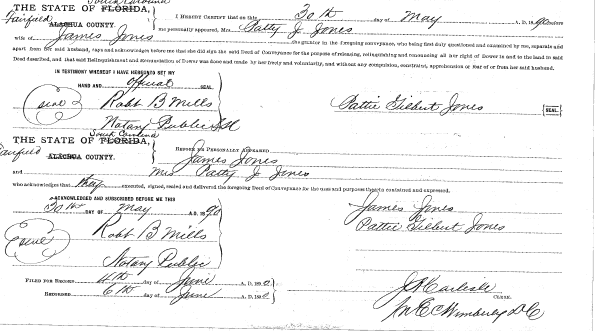 South Carolina
THE STATE OF FLORIDA,
Fairfield ALACHUA COUNTY.
I HEREBY CERTIFY that on this 30th day of May A. D. 1890 before
me personally appeared Mrs. Patty J. Jones
wife of James Jones the grantor in the foregoing conveyance, who being first duly questioned and examined by me, separate and
apart from her said husband, says and acknowledges before me that she did sign the said Deed of Conveyance for the purpose of releasing, relinquishing and renouncing all her right of Dower in and to the land in said
Deed described, and that said Relinquishment and Renunciation of Dower was done and made by her freely and voluntarily, and without any compulsion, constraint, apprehension or fear of or from her said husband.
IN TESTIMONY WHEREOF I HAVE HEREUNTO SET MY
HAND AND official SEAL.
Seal Robb B Mills
Pattie Gilbert Jones [SEAL.]
Notary Public
South Carolina
THE STATE OF FLORIDA,
Fairfield ALACHUA COUNTY.
BEFORE ME PERSONALLY APPEARED James Jones
and Mrs Patty J Jones
who acknowledges that they executed, signed, sealed and delivered the foregoing Deed of Conveyance for the uses and purposes therein contained and expressed.
ACKNOWLEDGED AND SUBSCRIBED BEFORE ME THIS
30th DAY OF May A. D. 1890
James Jones
Seal Robb B Mills
Pattie Gilbert Jones
Notary Public
FILED FOR RECORD 4th day of June A. D. 1890
J A Carlisle
CLERK.
RECORDED 6th day of June A. D. 1890
Wimberly D C